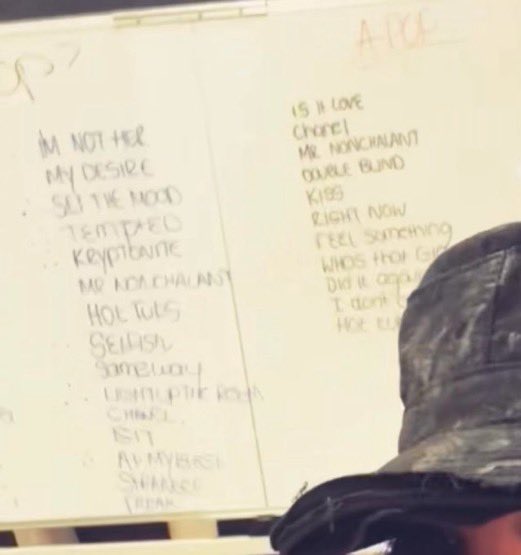 I'M NOT HER
MY DESIRE
SET THE MOOD
TEMPTED
KRYPTONITE
MR NONCHALANT
HOT TUBS
SELFISH
Someway
LIGHT UP THE ROOM
CHANEL
IS IT
AT MY BEST
STRANGER
FREAK
IS IT LOVE
Chanel
MR NONCHALANT
DOUBLE BLIND
KISS
RIGHT NOW
FEEL Something
WHOS that Gi
Did it again
I dont
HOT